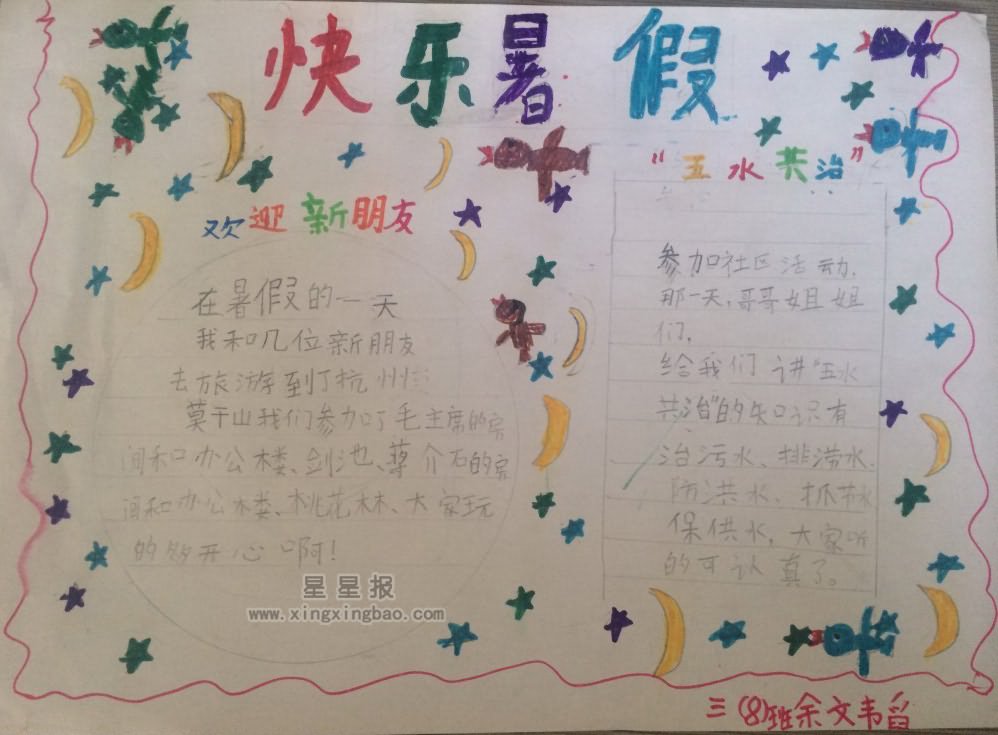 快乐暑假
欢迎新朋友
在暑假的一天
我和几位新朋友
去旅游到了杭州
莫干山我们参加了毛主席的房
间和办公楼、剑池、蒋介石的房
间和办公楼、桃花林、大家玩
的够开心啊!
"五水共治"
参加社区活动,
那一天,哥哥姐姐
们,
给我们讲"五水
共治"的知识有
治污水、排涝水、
防洪水、抓节水
保供水,大家听
的可认真了。
星星报
www.xingxingbao.com
三(8)班余文韦